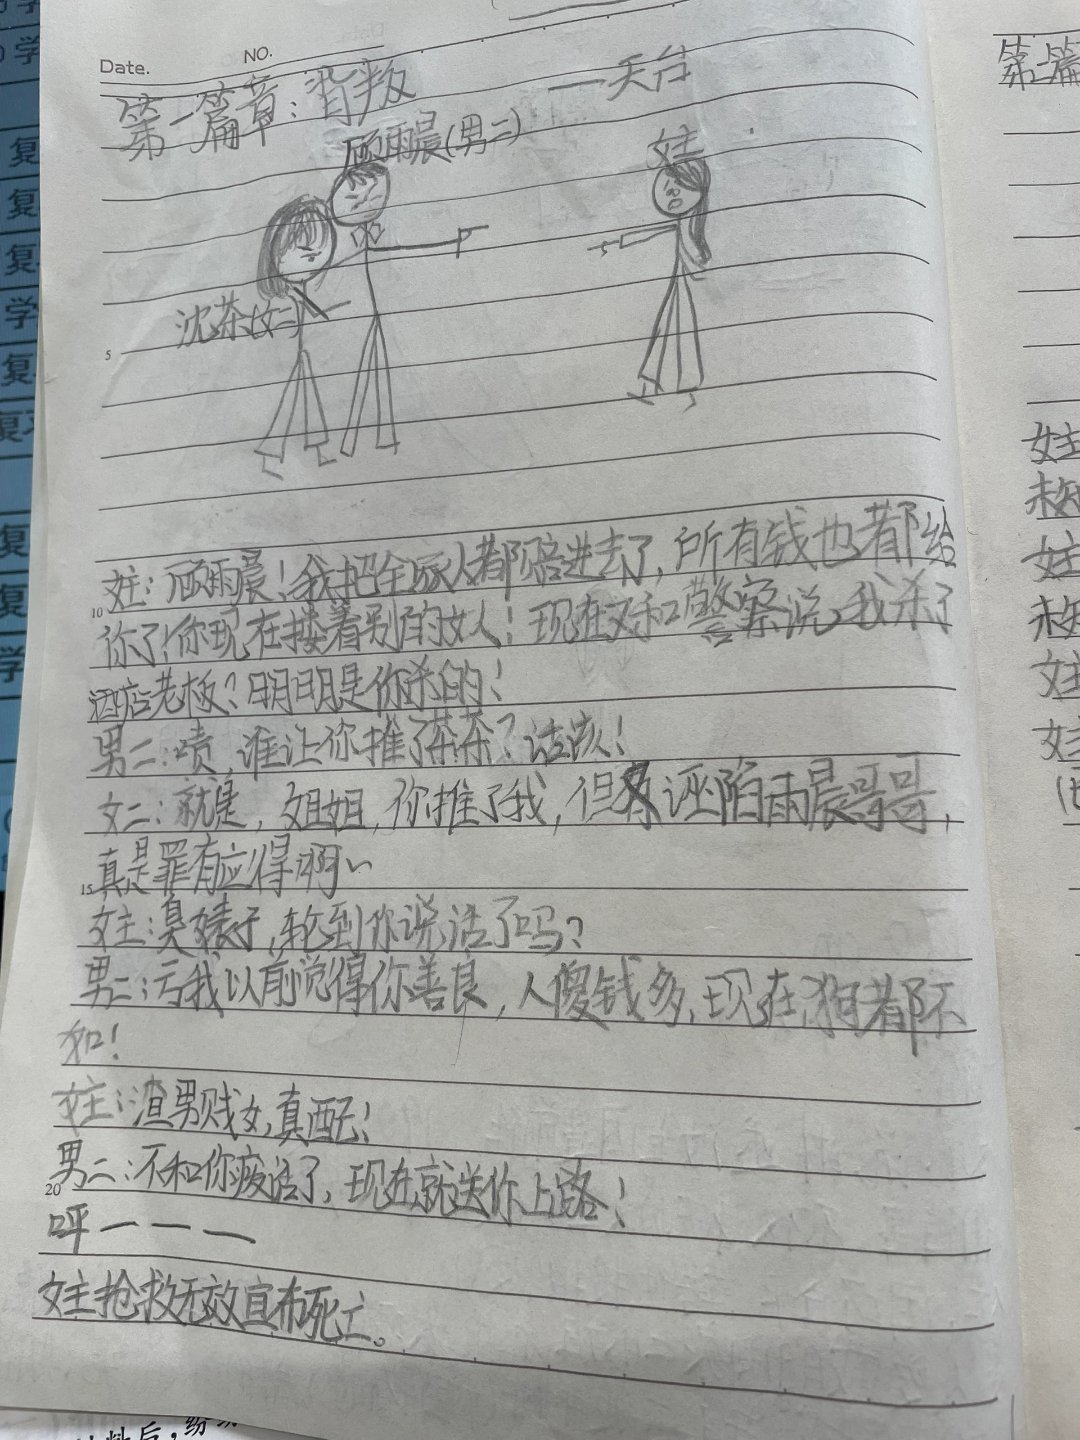 Date.
NO.
第一篇章：背叛 —天台
顾雨晨(男二)
女主
沈茶(女二)
5
女主：顾雨晨！我把全家人都陪进去了，所有钱也都给
10
你了！你现在搂着别的女人！现在又和警察说，我杀了
酒店老板？明明是你杀的！
男二：啧，谁让你推了茶茶？活该！
女二：就是，姐姐，你推了我，但又诬陷雨晨哥哥，
15
真是罪有应得啊~
女主：臭婊子，轮到你说话了吗？
男二：亏我以前觉得你善良，人傻钱多，现在，狗都不
如！
女主：渣男贱女，真配！
男二：不和你废话了，现在就送你上路！
20
呯一一一
女主抢救无效宣布死亡。
第二篇
女主
未知
女主
未知
女主
女主
复
复
复
学
复
复
复
学